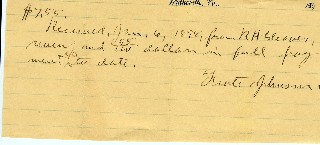 #7.55.
Received, Jan. 6, 1898, from R H Gleaves,
seven, and 55/100 dollars in full pay
ment to date.
Johnson